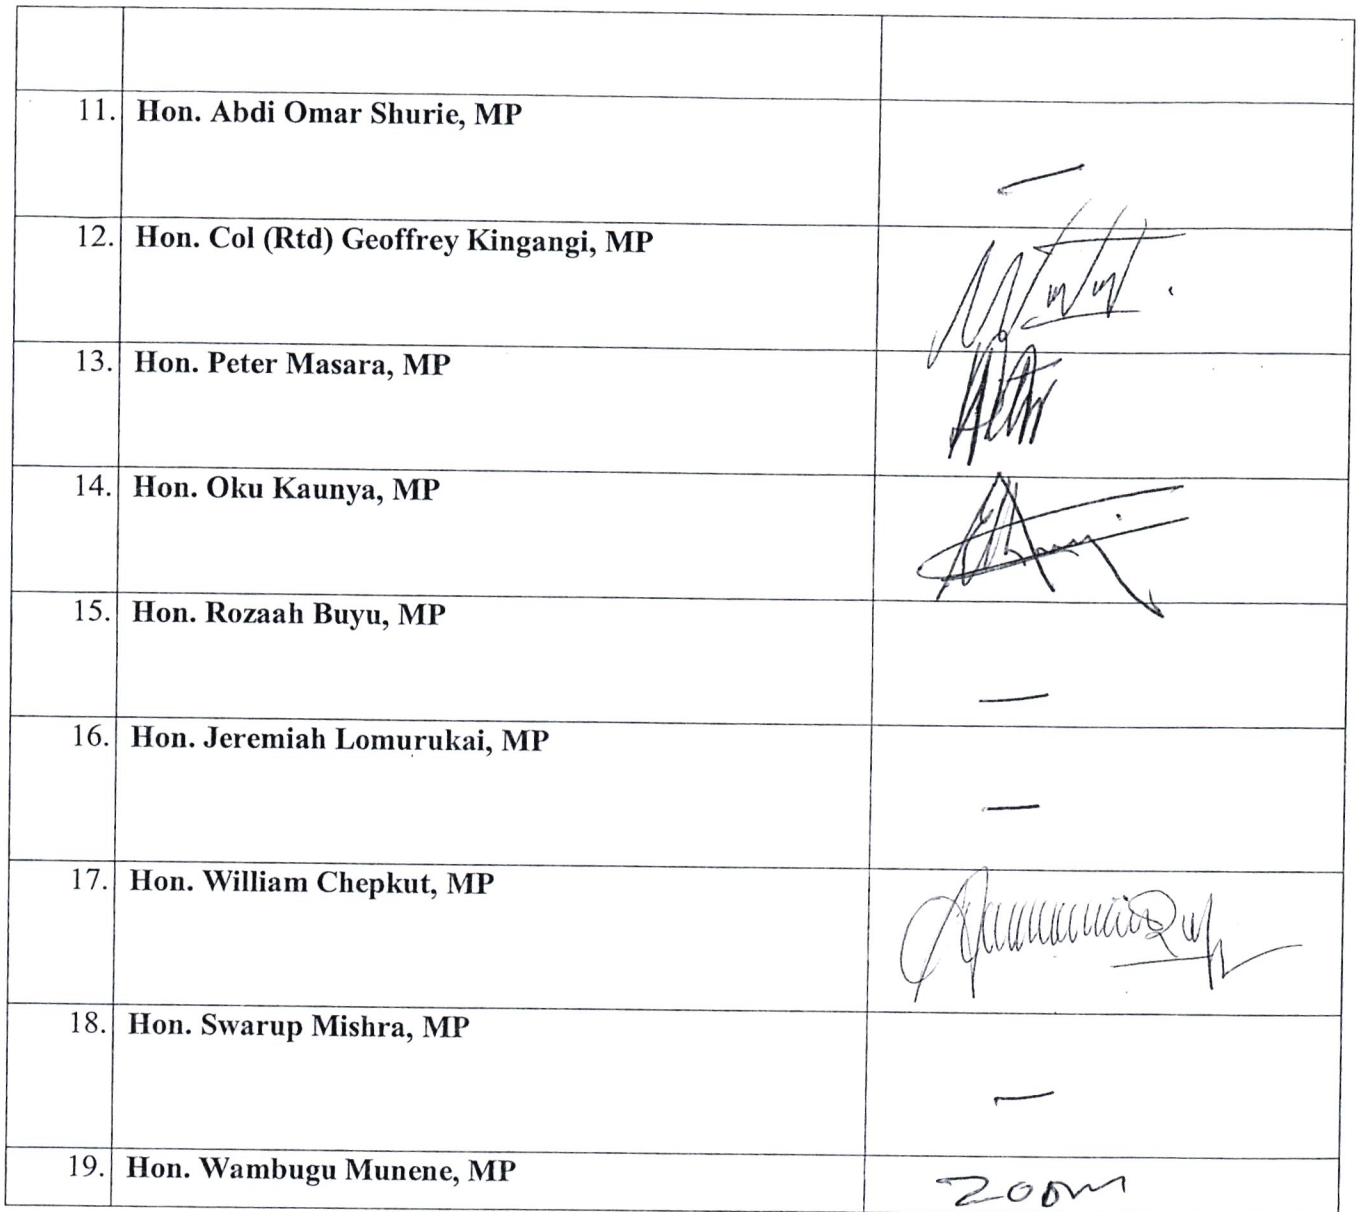 11. Hon. Abdi Omar Shurie, MP
—
12. Hon. Col (Rtd) Geoffrey Kingangi, MP
13. Hon. Peter Masara, MP
14. Hon. Oku Kaunya, MP
15. Hon. Rozaah Buyu, MP
—
16. Hon. Jeremiah Lomurukai, MP
—
17. Hon. William Chepkut, MP
18. Hon. Swarup Mishra, MP
—
19. Hon. Wambugu Munene, MP
ZOOM